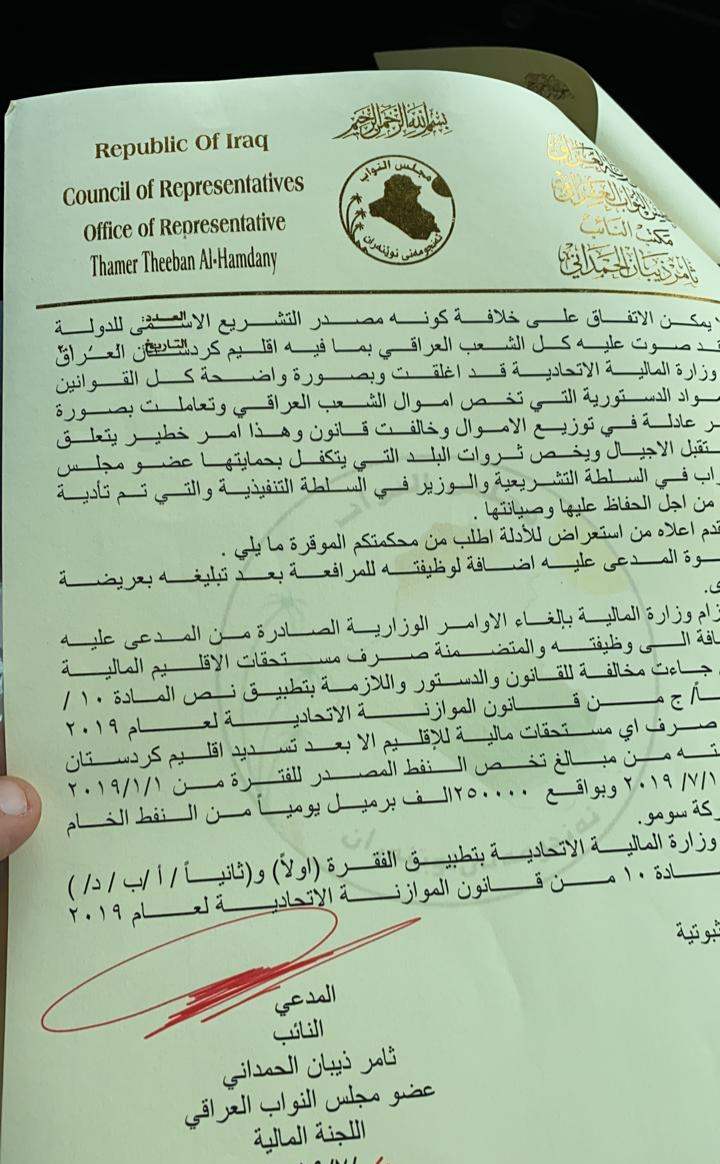 بسم الله الرحمن الرحيم
Republic Of Iraq
Council of Representatives
Office of Representative
Thamer Theeban Al-Hamdany
مجلس النواب
ئەنجومەنی نوێنەران
مكتب النائب
ثامر ذيبان الحمداني
العدد:
التاريخ:
يمكن الاتفاق على خلافة كونه مصدر التشريع الاسمى للدولة
قد صوت عليه كل الشعب العراقي بما فيه اقليم كردستان العراق
وزارة المالية الاتحادية قد اغلقت وبصورة واضحة كل القوانين
واد الدستورية التي تخص اموال الشعب العراقي وتعاملت بصورة
ر عادلة في توزيع الاموال وخالفت قانون وهذا امر خطير يتعلق
ستقبل الاجيال ويخص ثروات البلد التي يتكفل بحمايتها عضو مجلس
واب في السلطة التشريعية والوزير في السلطة التنفيذية والتي تم تأدية
من اجل الحفاظ عليها وصيانتها .
قدم اعلاه من استعراض للأدلة اطلب من محكمتكم الموقرة ما يلي .
وة المدعى عليه اضافة لوظيفته للمرافعة بعد تبليغه بعريضة
ى.
زام وزارة المالية بإلغاء الاوامر الوزارية الصادرة من المدعى عليه
افة الى وظيفته والمتضمنة صرف مستحقات الاقليم المالية
جاءت مخالفة للقانون والدستور واللازمة بتطبيق نص المادة ١٠ /
أ/ ج من قانون الموازنة الاتحادية لعام ٢٠١٩
صرف اي مستحقات مالية للإقليم الا بعد تسديد اقليم كردستان
ته من مبالغ تخص النفط المصدر للفترة من ٢٠١٩/١/١
٢٠١٩/٧/١ وبواقع ٢٥٠٠٠٠الف برميل يومياً من النفط الخام
ركة سومو.
وزارة المالية الاتحادية بتطبيق الفقرة (اولاً) و(ثانياً / أ /ب / د/ )
ادة ١٠ من قانون الموازنة الاتحادية لعام ٢٠١٩
ثبوتية
المدعي
النائب
ثامر ذيبان الحمداني
عضو مجلس النواب العراقي
اللجنة المالية